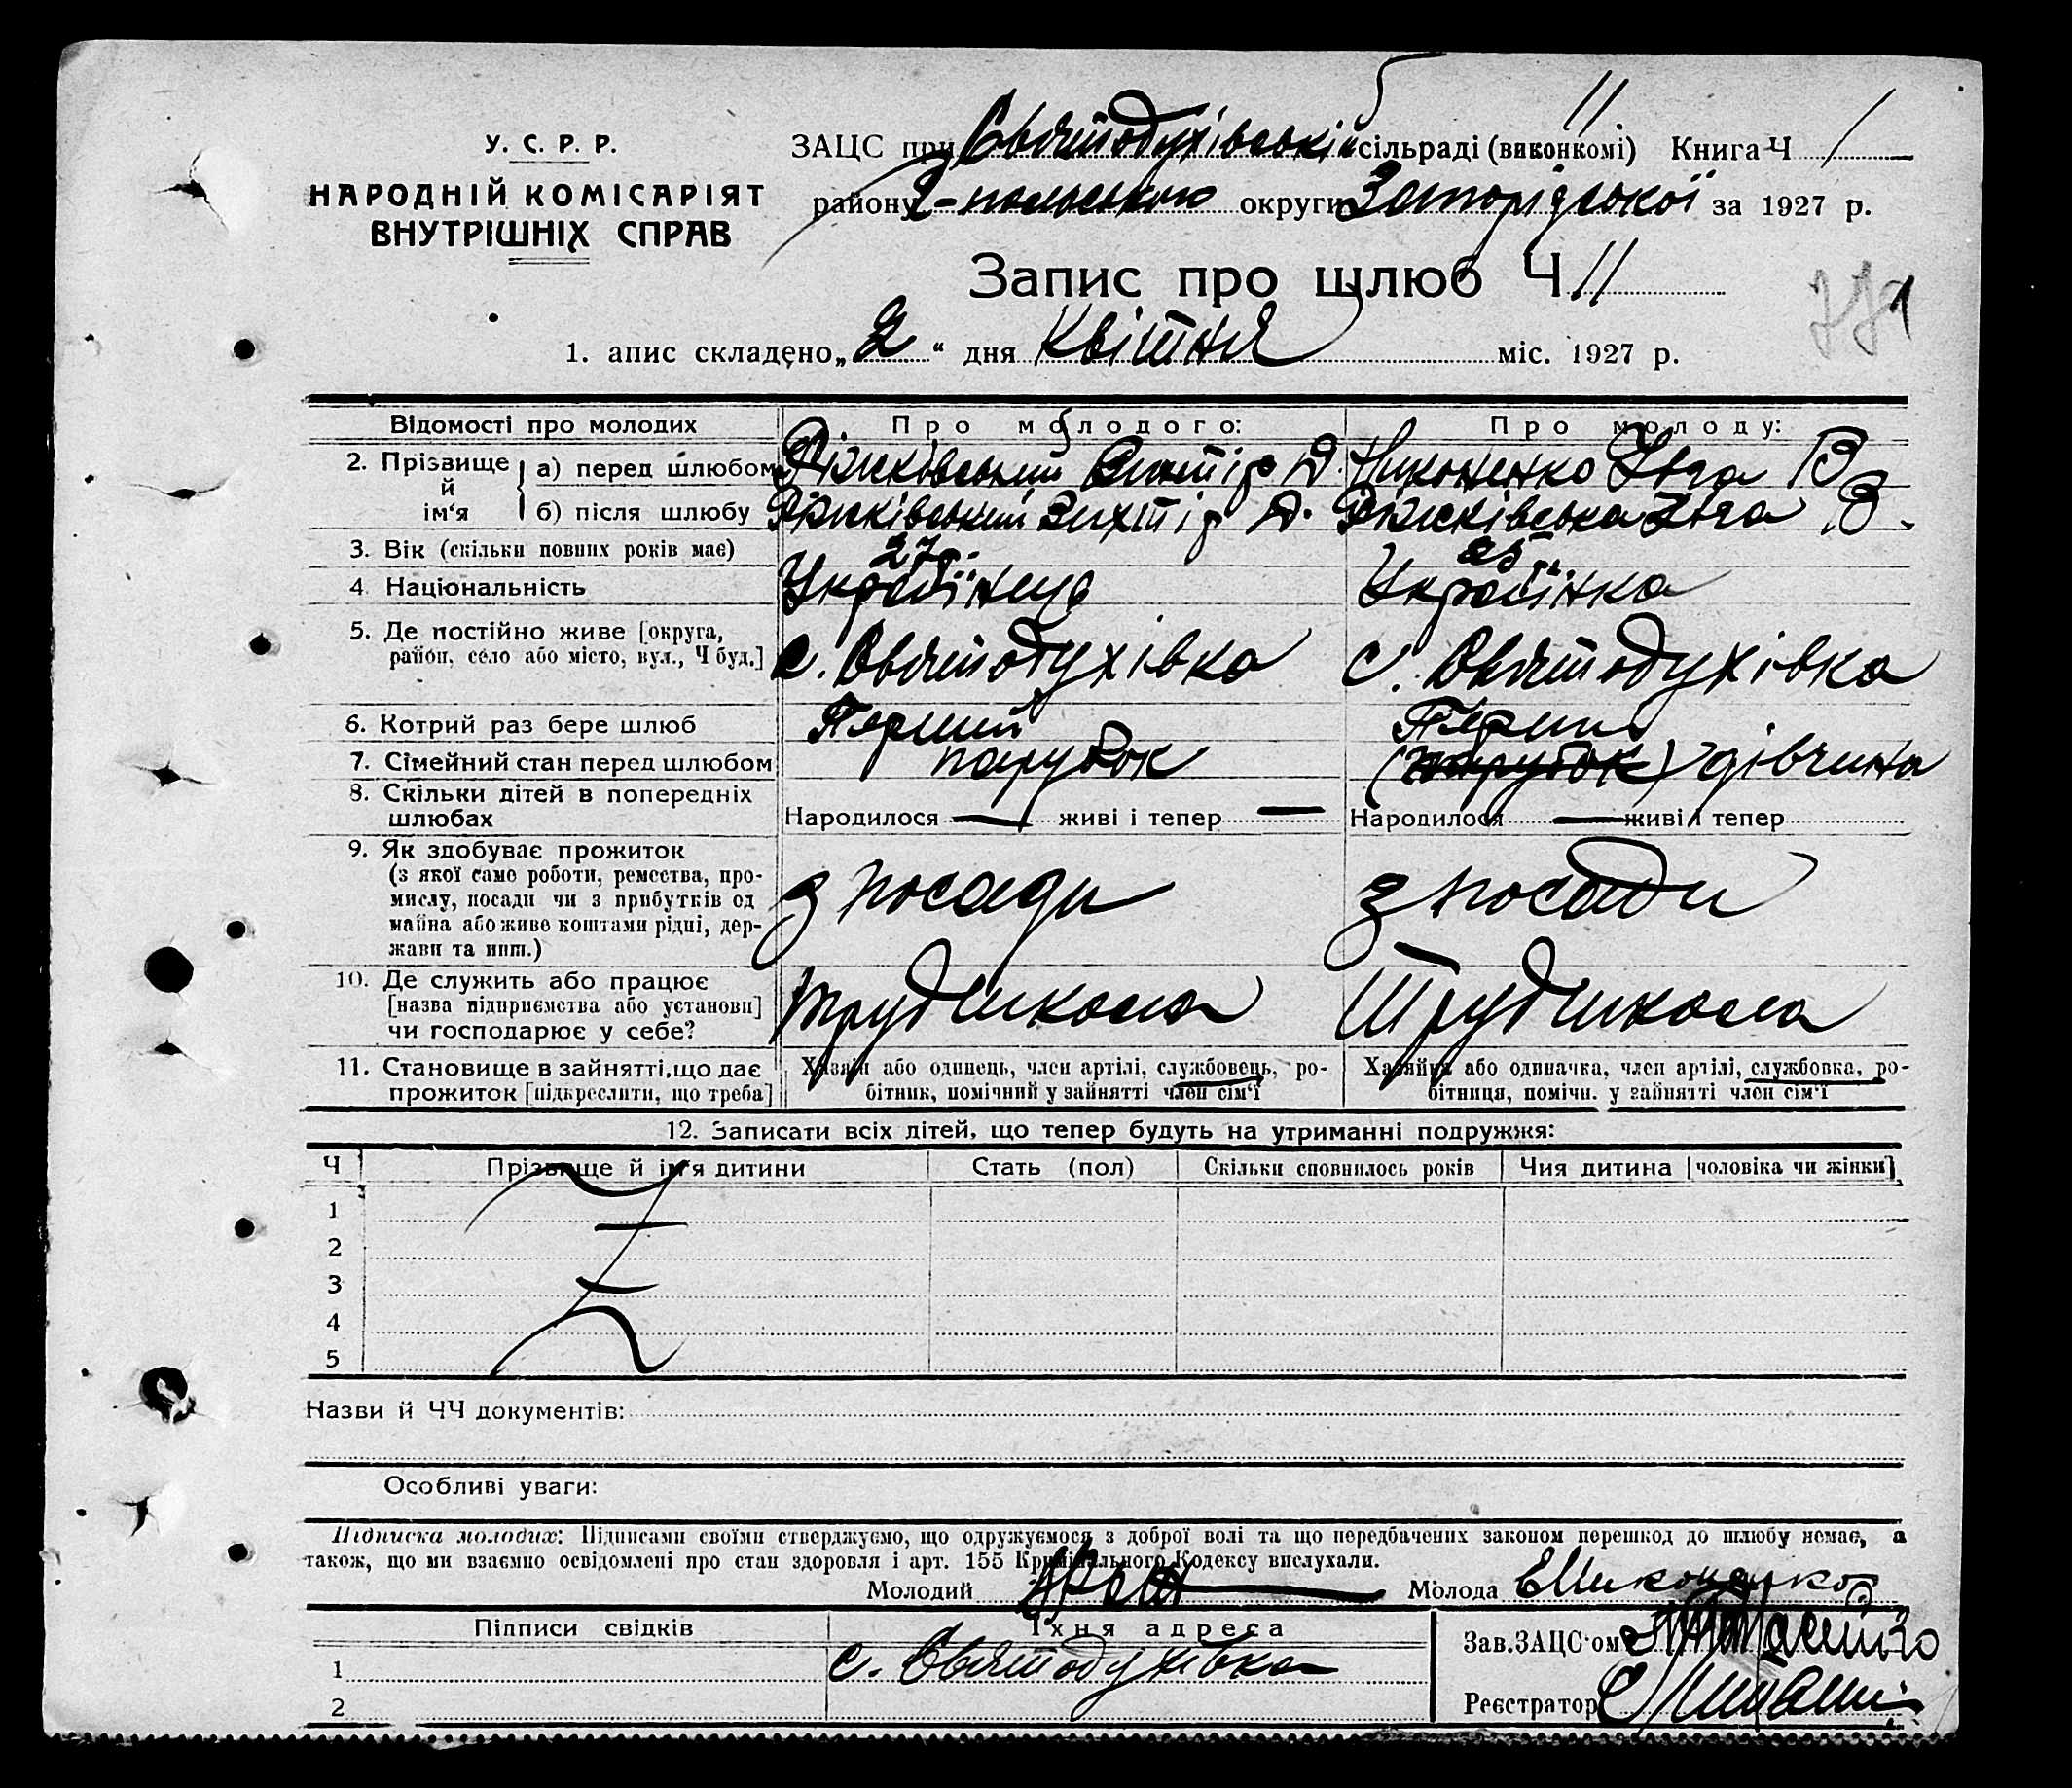 У. С. Р. Р.
НАРОДНІЙ КОМІСАРІЯТ
ВНУТРІШНІХ СПРАВ
11
ЗАЦС при Святодухівській сільраді (виконкомі) Книга Ч 1
району округи Запорізької за 1927 р.
Запис про шлюб Ч 11
1. апис складено „2“ дня Квітня міс. 1927 р.
Відомості про молодих Про молодого: Про молоду:
2. Прізвище й ім‘я
а) перед шлюбом Д. Никоненко В
б) після шлюбу Д. В.
3. Вік (скільки повних років має) 27 р. 25
4 Національність Українець Українка
5. Де постійно живе [округа, район, село або місто, вул., Ч буд.] с. Святодухівка с. Святодухівка
6. Котрий раз бере шлюб Перший
7. Сімейний стан перед шлюбом парубок (парубок) дівчина
8. Скільки дітей в попередніх шлюбах Народилося — живі і тепер — Народилося — живі і тепер
9. Як здобуває прожиток
(з якої саме роботи, ремества, про-
мислу, посади чи з прибутків од
майна або живе коштами рідні, дер-
жави та инш.)
з посади з посади
10. Де служить або працює
[назва підприємства або установи]
чи господарює у себе?
трудшкола Трудшкола
11. Становище в зайнятті, що дає
прожиток [підкреслити, що треба]
Хазяїн або одинець, член артілі, службовець, ро-
бітник, помічний у зайнятті член сім‘ї
Хазяйка або одиначка, член артілі, службовка, ро-
бітниця, помічн. у зайнятті член сім‘ї
12. Записати всіх дітей, що тепер будуть на утриманні подружжя:
Ч Прізвище й ім‘я дитини Стать (пол) Скільки сповнилось років Чия дитина [чоловіка чи жінки]
1
2
3
4
5
Назви й ЧЧ документів:
Особливі уваги:
Підписка молодих: Підписами своїми стверджуємо, що одружуємося з доброї волі та що передбачених законом перешкод до шлюбу немає, а
також, що ми взаємно освідомлені про стан здоровля і арт. 155 Кримінального Кодексу вислухали.
Молодий Молода
Підписи свідків Їхня адреса
Зав. ЗАЦС‘ом
1 с. Святодухівка
Реєстратор
2